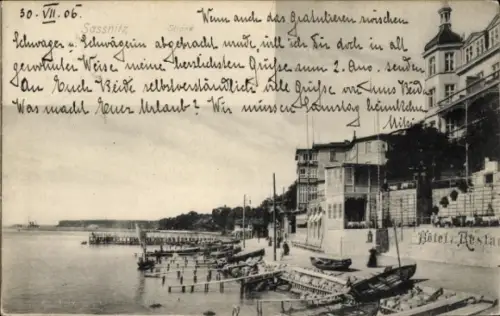 30. VII. 06.
Sassnitz Strand
Wenn auch das Gratulieren zwischen
Schwager u. Schwägerin abgebracht wurde, will ich Dir doch in alt
gewohnter Weise meine herzlichsten Grüße zum 2. Aug. senden
An Euch Beide selbstverständlich viele Grüße von uns Beiden
Was macht Euer Urlaub? Wir müssen Samstag heimkehren
Hôtel z. Küstan